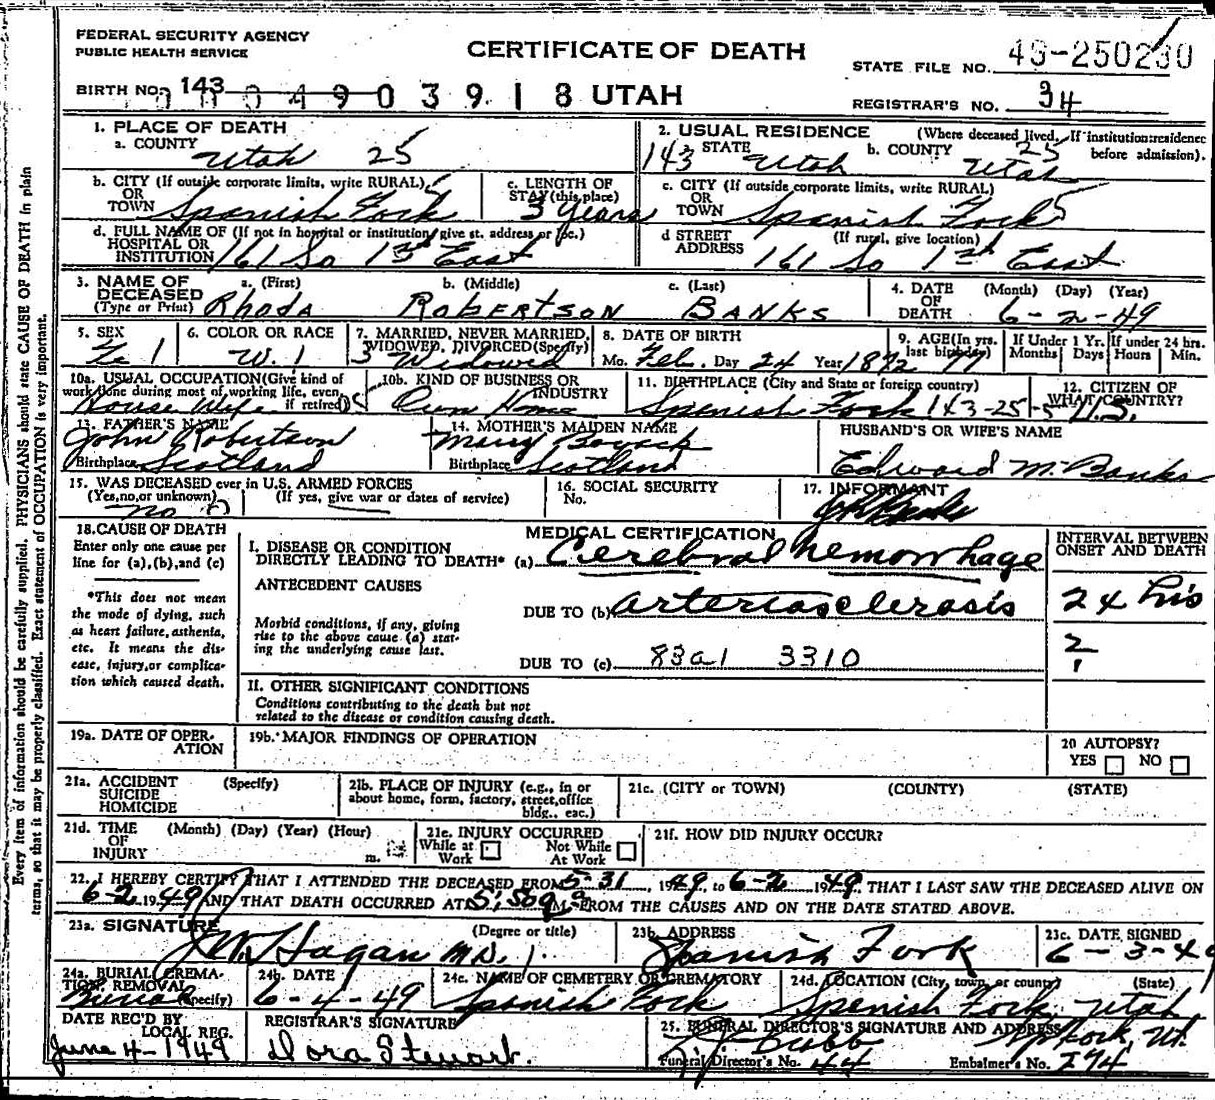 FEDERAL SECURITY AGENCY
PUBLIC HEALTH SERVICE
CERTIFICATE OF DEATH
STATE FILE NO. 49-250230
BIRTH NO. 143
0004903918 UTAH
REGISTRAR'S NO. 34
1. PLACE OF DEATH
a. COUNTY
Utah 25
2. USUAL RESIDENCE (Where deceased lived. If institution: residence before admission).
143 STATE Utah b. COUNTY 25 Utah
b. CITY (If outside corporate limits, write RURAL)
OR
TOWN Spanish Fork 5
c. LENGTH OF
STAY (this place)
3 Years
c. CITY (If outside corporate limits, write RURAL)
OR
TOWN Spanish Fork 5
d. FULL NAME OF (If not in hospital or institution, give st. address or loc.)
HOSPITAL OR
INSTITUTION 161 So 1st East
d STREET (If rural, give location)
ADDRESS 161 So 1st East
3. NAME OF DECEASED
(Type or Print)
a. (First) b. (Middle) c. (Last)
Rhoda Robertson Banks
4. DATE OF DEATH (Month) (Day) (Year)
6-2-49
5. SEX
Fe 1
6. COLOR OR RACE
W. 1
7. MARRIED, NEVER MARRIED,
WIDOWED, DIVORCED (Specify)
3 Widowed
8. DATE OF BIRTH
Mo. Feb. Day 24 Year 1872
9. AGE (In yrs. last birthday) 77
If Under 1 Yr. Months Days
If under 24 hrs. Hours Min.
10a. USUAL OCCUPATION (Give kind of
work done during most of working life, even
if retired)
House Wife
10b. KIND OF BUSINESS OR
INDUSTRY
Own Home
11. BIRTHPLACE (City and State or foreign country)
Spanish Fork 143-25-5
12. CITIZEN OF
WHAT COUNTRY?
U.S.
13. FATHER'S NAME
John Robertson
Birthplace Scotland
14. MOTHER'S MAIDEN NAME
Mary
Birthplace Scotland
HUSBAND'S OR WIFE'S NAME
Edward M. Banks
15. WAS DECEASED ever in U.S. ARMED FORCES
(Yes, no, or unknown) (If yes, give war or dates of service)
no 0
16. SOCIAL SECURITY
No.
17. INFORMANT
Banks
18. CAUSE OF DEATH
Enter only one cause per
line for (a), (b), and (c)
*This does not mean
the mode of dying, such
as heart failure, asthenia,
etc. It means the dis-
ease, injury, or complica-
tion which caused death.
MEDICAL CERTIFICATION
I. DISEASE OR CONDITION
DIRECTLY LEADING TO DEATH* (a) Cerebral hemorrhage
ANTECEDENT CAUSES
DUE TO (b) arteriosclerosis
Morbid conditions, if any, giving
rise to the above cause (a) stat-
ing the underlying cause last.
DUE TO (c) 83a1 3310
INTERVAL BETWEEN
ONSET AND DEATH
24 hrs
?
1
II. OTHER SIGNIFICANT CONDITIONS
Conditions contributing to the death but not
related to the disease or condition causing death.
19a. DATE OF OPER-
ATION
19b. MAJOR FINDINGS OF OPERATION
20 AUTOPSY?
YES NO
21a. ACCIDENT (Specify)
SUICIDE
HOMICIDE
21b. PLACE OF INJURY (e.g., in or
about home, form, factory, street, office
bldg., eac.)
21c. (CITY or TOWN) (COUNTY) (STATE)
21d. TIME (Month) (Day) (Year) (Hour)
OF
INJURY m.
21e. INJURY OCCURRED
While at Work Not While At Work
21f. HOW DID INJURY OCCUR?
22. I HEREBY CERTIFY THAT I ATTENDED THE DECEASED FROM 5-31, 1949, to 6-2 1949, THAT I LAST SAW THE DECEASED ALIVE ON
6-2 1949 AND THAT DEATH OCCURRED AT 5:50a M., FROM THE CAUSES AND ON THE DATE STATED ABOVE.
23a. SIGNATURE (Degree or title)
J.W. Hagan M.D.
23b. ADDRESS
Spanish Fork
23c. DATE SIGNED
6-3-49
24a. BURIAL, CREMA-
TION, REMOVAL
(Specify)
Burial
24b. DATE
6-4-49
24c. NAME OF CEMETERY OR CREMATORY
Spanish Fork
24d. LOCATION (City, town, or county) (State)
Spanish Fork, Utah
DATE REC'D BY
LOCAL REG.
June 4-1949
REGISTRAR'S SIGNATURE
Dora Stewart.
25. FUNERAL DIRECTOR'S SIGNATURE AND ADDRESS
Sp Fork, Ut.
Funeral Director's No. 44 Embalmer's No. 274
Every item of information should be carefully supplied. PHYSICIANS should state CAUSE OF DEATH in plain
terms, so that it may be properly classified. Exact statement of OCCUPATION is very important.